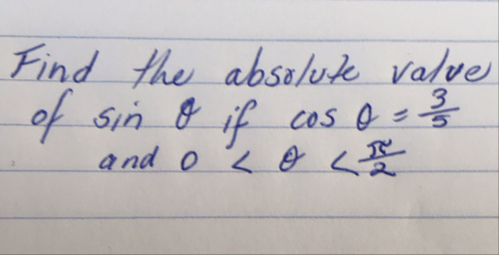 Find the absolute value
of sin θ if cos θ = 3/5
and 0 < θ < π/2